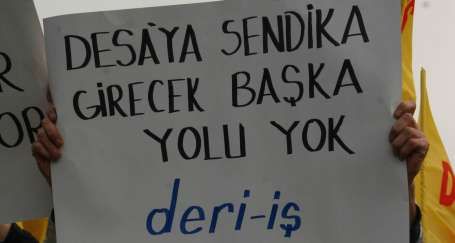 DESA'YA SENDİKA
GİRECEK BAŞKA
YOLU YOK
deri-iş